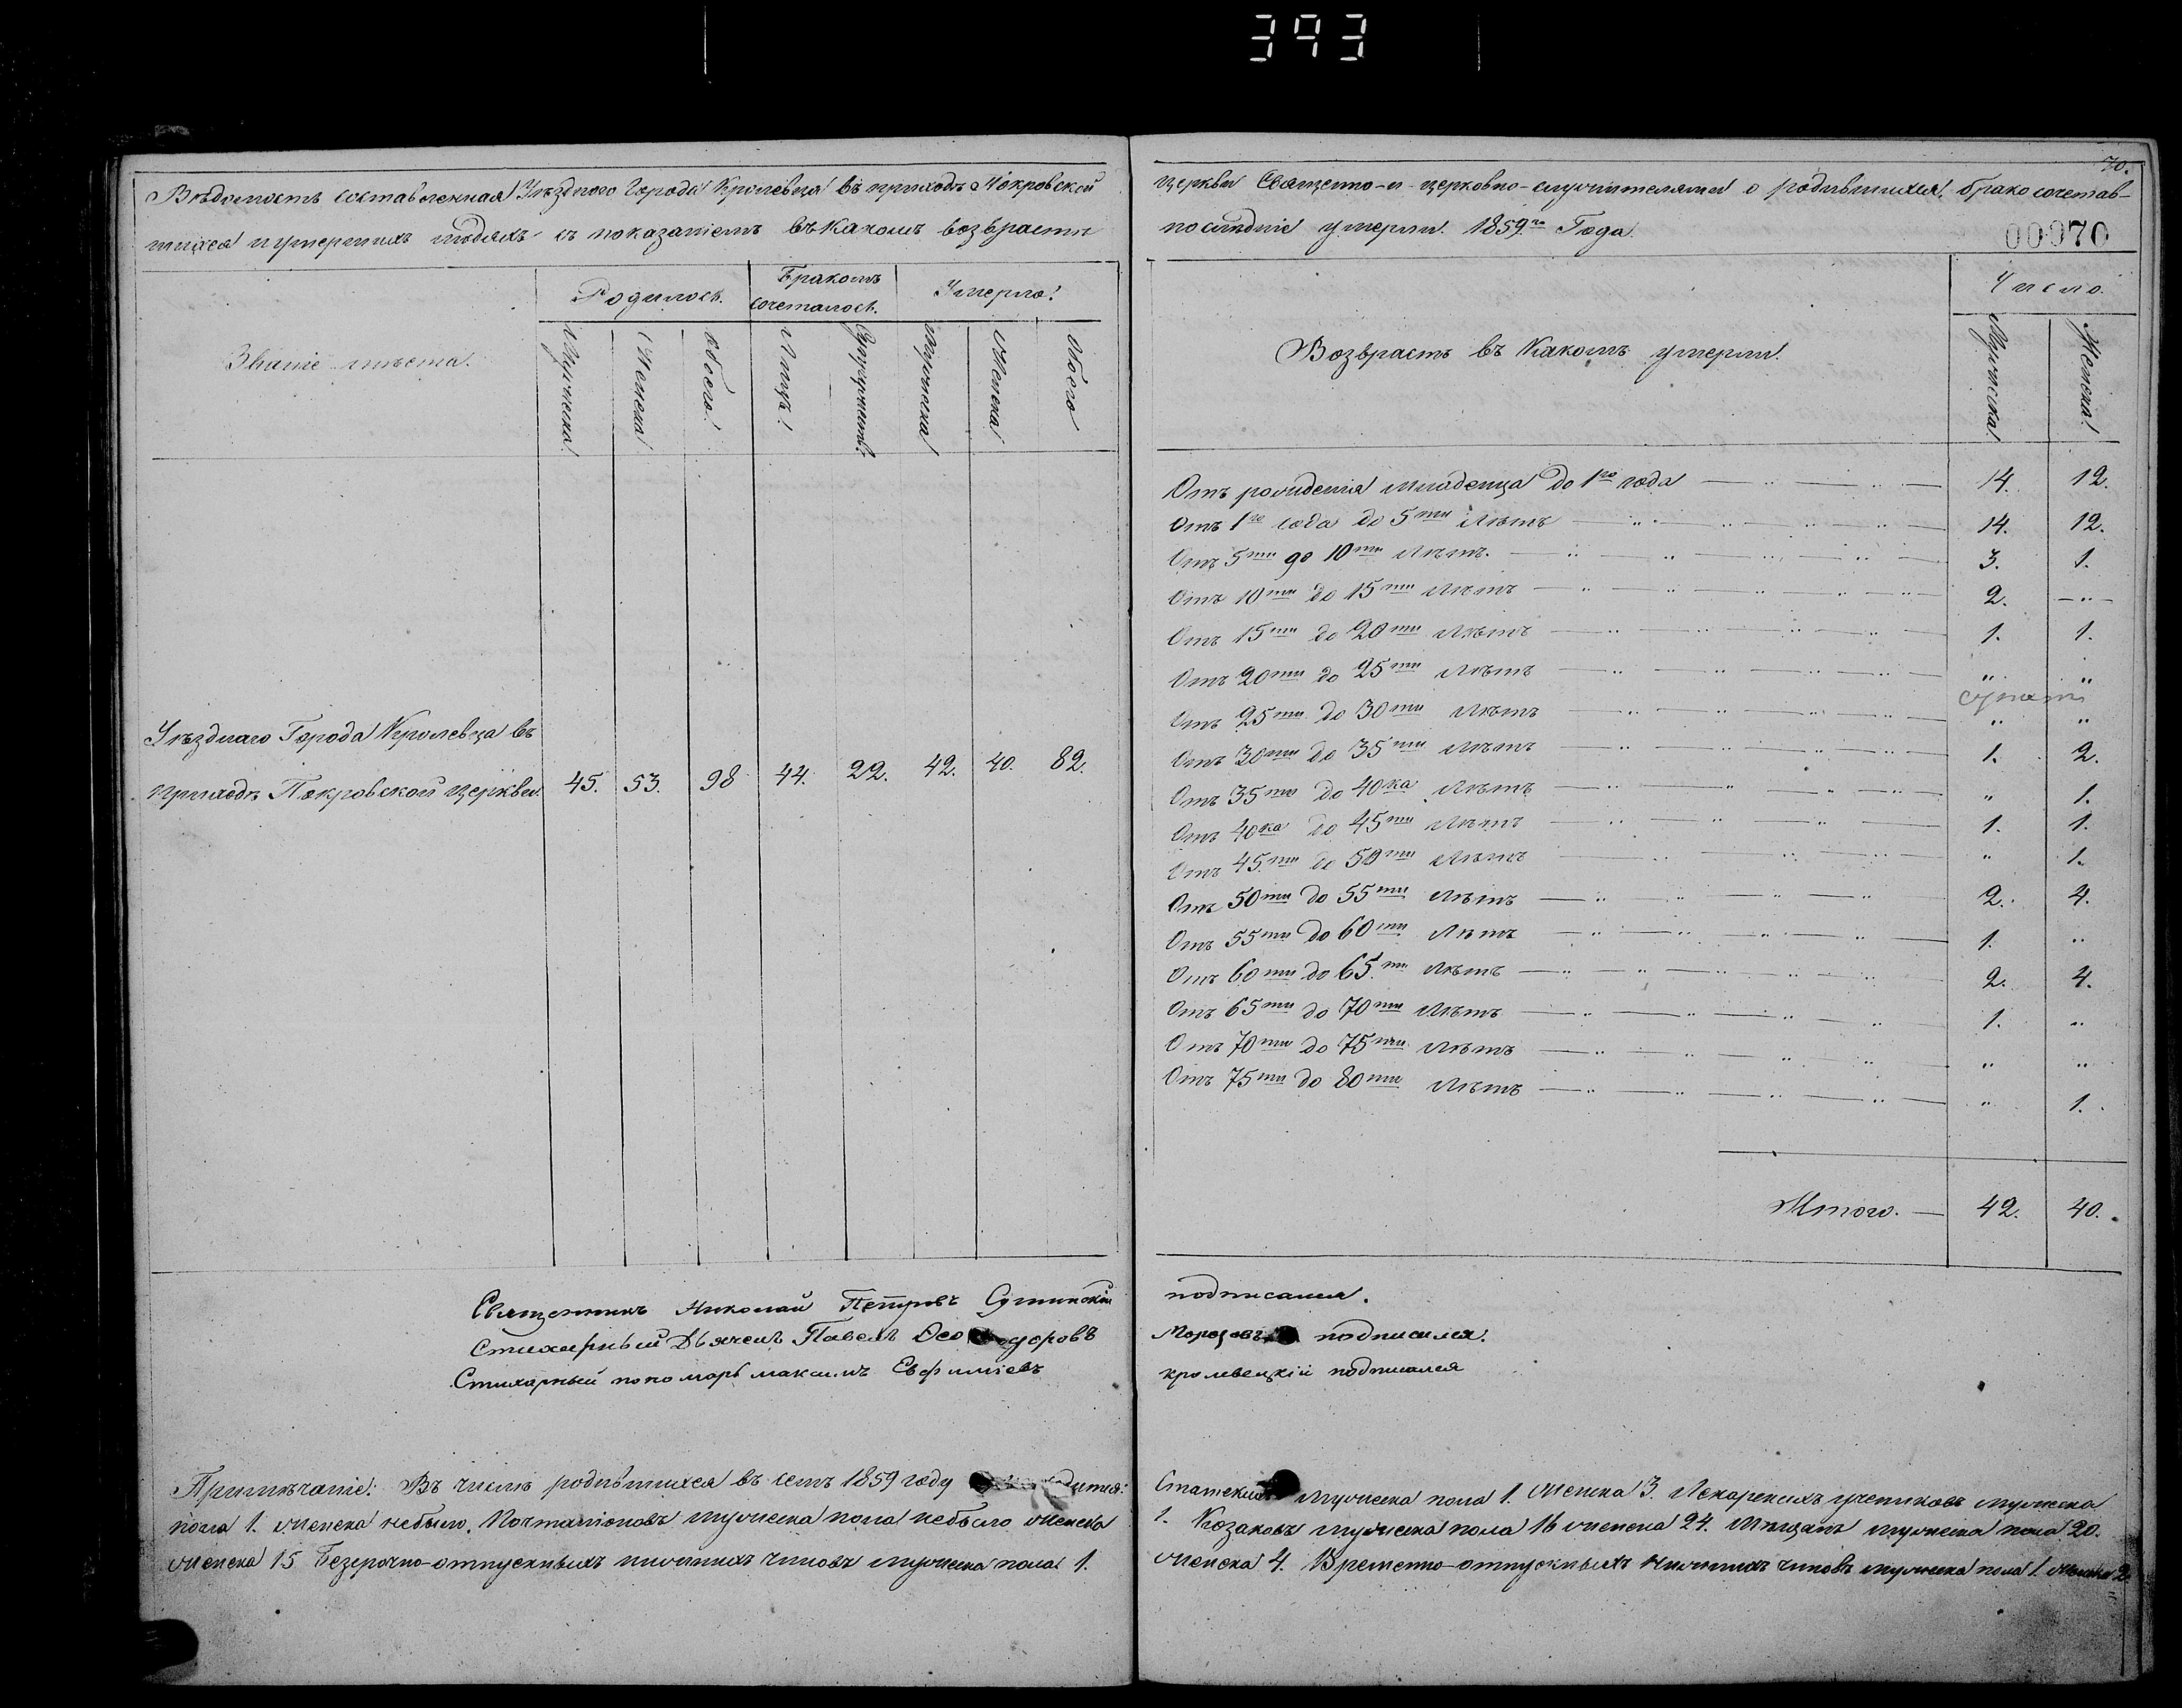 393
70.
00070
Вѣдомость составленная Уѣзднаго Города Кролевца въ приходѣ Покровской
шихся и умершихъ людяхъ съ показаніемъ въ какомъ возврасты
церкви Священно-и-церковно-служителями о родившихся, брако сочетав-
послѣдніе умерли. 1859го Года.
Званіе мѣста.
Родилось.
Бракомъ
сочеталось.
Умерло.
Мужеска
Женска
обоего.
Лицъ.
Супружествъ.
Мужеска
Женска
Обоего
Уѣзднаго Города Кролевца въ
приходѣ Покровской церкви. 45. 53. 98 44. 22. 42. 40. 82.
Возврастъ въ какомъ умерли.
Число.
Мужеска.
Женска.
Отъ рожденія младенца до 1го года 14. 12.
Отъ 1го года до 5ти лѣтъ 14. 12.
Отъ 5ти до 10ти лѣтъ. 3. 1.
Отъ 10ти до 15ти лѣтъ 2. —„—
Отъ 15ти до 20ти лѣтъ 1. 1.
Отъ 20ти до 25ти лѣтъ „ „
Отъ 25ти до 30ти лѣтъ „ „
Отъ 30ти до 35ти лѣтъ 1. 2.
Отъ 35ти до 40ка лѣтъ „ 1.
Отъ 40ка до 45ти лѣтъ 1. 1.
Отъ 45ти до 50ти лѣтъ „ 1.
Отъ 50ти до 55ти лѣтъ 2. 4.
Отъ 55ти до 60ти лѣтъ 1. „
Отъ 60ти до 65ти лѣтъ 2. 4.
Отъ 65ти до 70ти лѣтъ 1. „
Отъ 70ти до 75ти лѣтъ „ „
Отъ 75ти до 80ти лѣтъ „ 1.
Итого. — 42. 40.
Священникъ Николай Петровъ подписался.
Стихарный Дьячекъ Павелъ Морозовъ подписался.
Стихарный пономарь максимъ Евфиміевъ кролевецкій подписался
Примѣчаніе: Въ числѣ родившихся въ семъ 1859 году
пола 1. женска небыло. Почталіоновъ мужеска пола небыло женска
женска 15 Безсрочно-отпускныхъ нижнихъ чиновъ мужеска пола 1.
Статскихъ мужеска пола 1. женска 3. Лекарскихъ учениковъ мужеска
1. Козаковъ мужеска пола 16 женска 24. Мѣщанъ мужеска пола 20.
женска 4. Временно-отпускныхъ нижнихъ чиновъ мужеска пола 1 женска 2